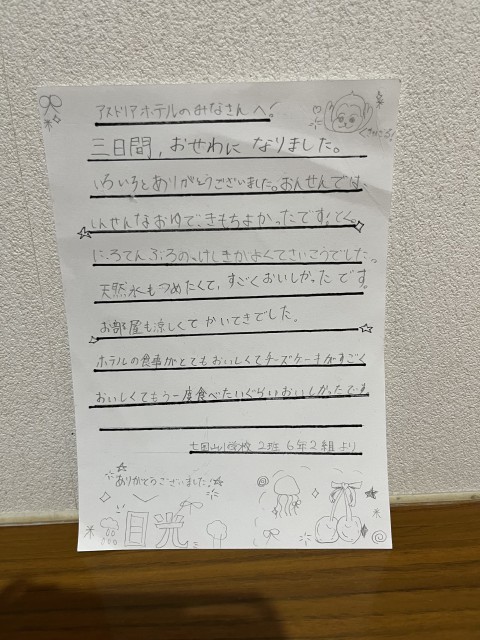 アストリアホテルのみなさんへ!
三日間,おせわに なりました。
いろいろとありがとうございました。おんせんでは、
しんせんなおゆで、きもちよかったです!とく
にろてんぶろの、けしきがよくてさいこうでした。
天然水もつめたくて、すごくおいしかったです。
お部屋も涼しくてかいてきでした。
ホテルの食事がとてもおいしくてチーズケーキがすごく
おいしくてもう一度食べたいぐらいおいしかったです
七国山小学校 2班 6年2組より
ありがとうございました!
日光